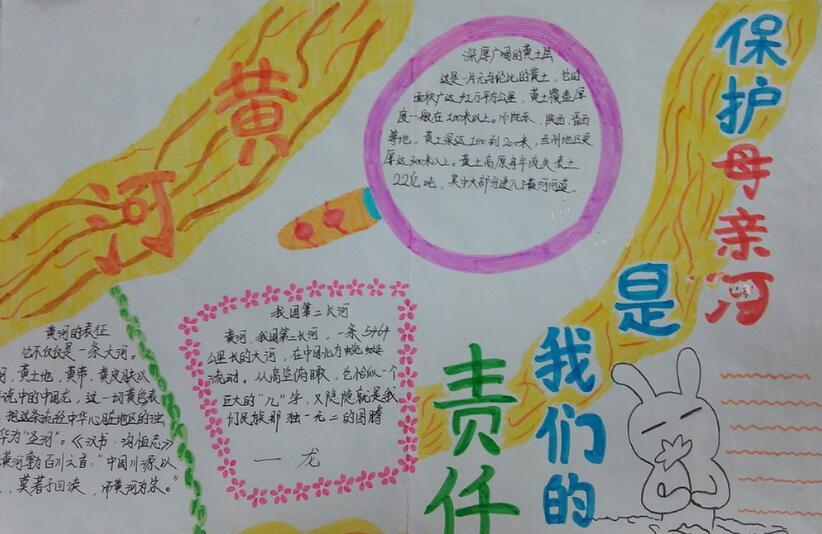 黄河
深厚广阔的黄土层
这是一片无与伦比的黄土，它的
面积广达72万平方公里，黄土覆盖厚
度一般在100米以上。陕西
等地，黄土深达100到200米，兰州地区更
厚达300米以上。黄土高原每年流失表土
22亿吨，其中大部分进入了黄河河道。
保护母亲河
是
我们的
责任
我国第二长河
黄河，我国第二长河，一条5464
公里长的大河，在中国北方蜿蜒
流动。从高空俯瞰，它恰似一个
巨大的“几”字，又隐隐就是我
们民族那独一无二的图腾
一龙
黄河的表征
它不仅仅是一条大河。
河，黄土地，黄帝，黄皮肤以
说中的中国龙，这一切黄色表
把这条流经中华心脏地区的浊
华为“《汉书·沟恤志》
黄河尊为百川之首：“中国川源以
，莫若于四渎，而黄河为宗。”